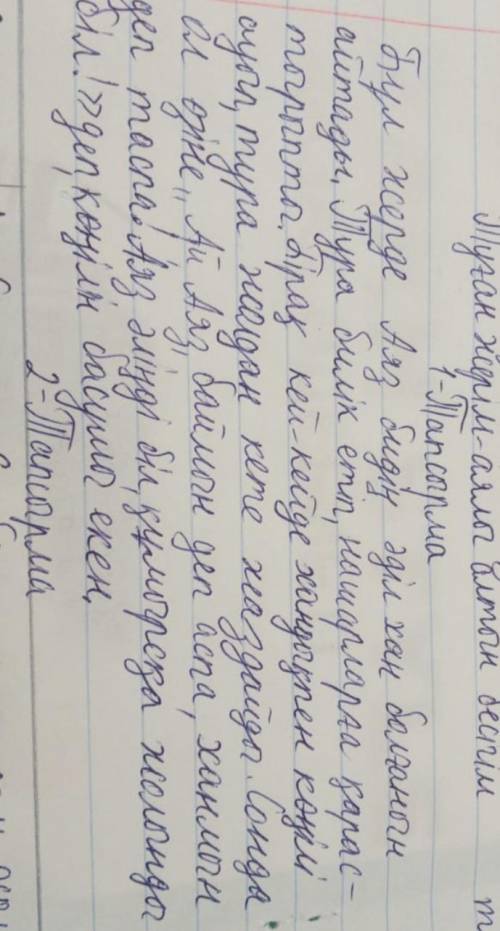 Туған жерім-аялы алтын бесігім
1-Тапсырма
Бұл жерде Аяз бидің әділ хан болғанын
айтады. Тура билік етіп, нашарларға қарас-
тырыпты. Бірақ кей-кейде хандықпен көңілі
ауып, тура жолдан кете жаздайды. Сонда
ол өзіне „Ай Аяз, баймын деп аспа, ханмын
деп таспа! Аяз әліңді біл, құмырсқа жолыңды
біл!» деп, көңілін басушы екен.
2-Тапсырма